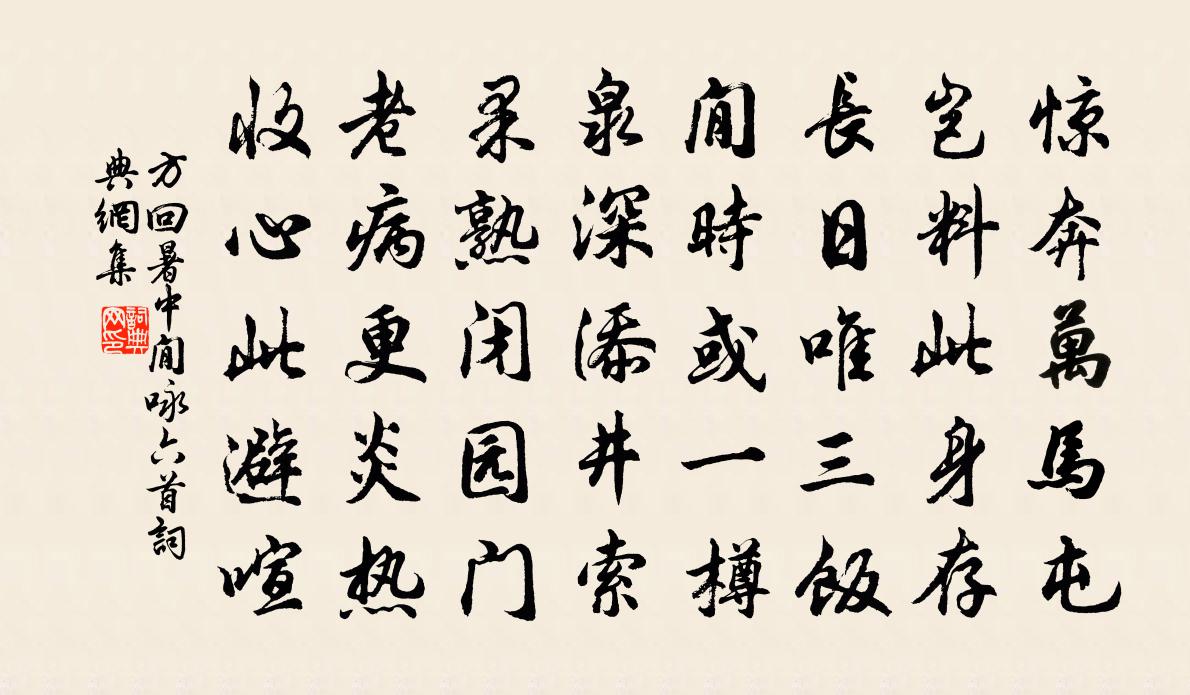 惊奔萬馬屯
岂料此身存
長日唯三飯
閒時或一樽
泉深添井索
果熟闭园门
老病更炎热
收心此避喧
方回暑中閒咏六首詞
典網集
詞典
网印